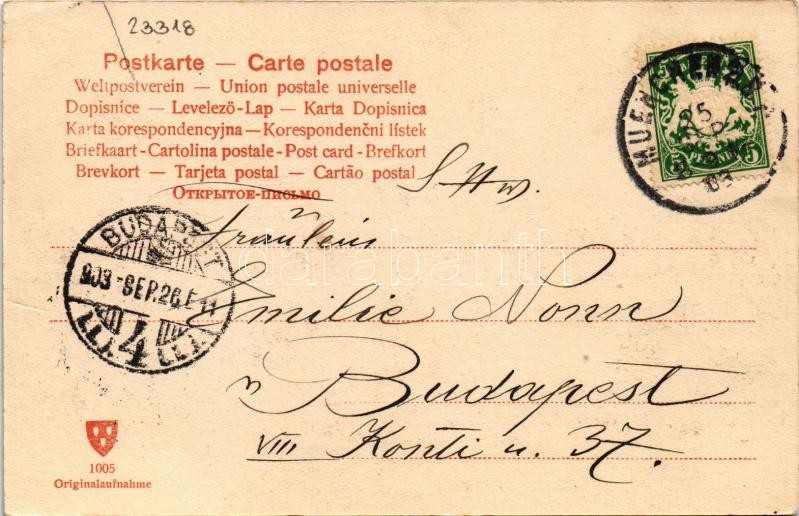 23318
Postkarte — Carte postale
Weltpostverein — Union postale universelle
Dopisnice — Levelező-Lap — Karta Dopisnica
Karta korespondencyjna — Korespondenčni lístek
Briefkaart - Cartolina postale - Post card - Brefkort
Brevkort — Tarjeta postal — Cartão postal
Открытое-письмо
MUENCHEN
25
SEP
03
5 5
PFENNIG
Fräulein
BUDAPEST
903 - SEP. 26.
4
Emilie Nonn
Budapest
VIII Konti u. 37.
darabanth
1005
Originalaufnahme